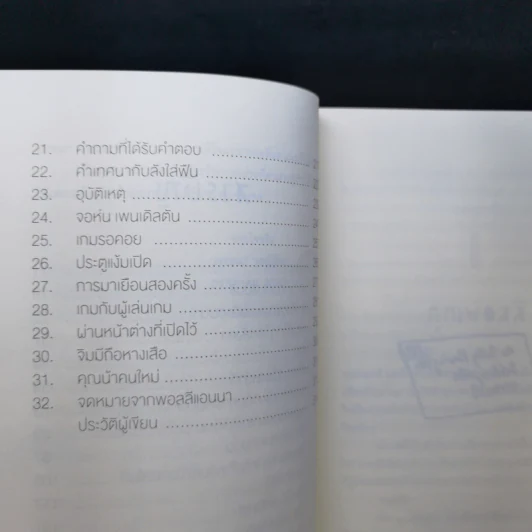 21. คำถามที่ได้รับคำตอบ
22. คำเทศนากับลังใส่ฟืน
23. อุบัติเหตุ
24. จอห์น เพนเดิลตัน
25. เกมรอคอย
26. ประตูแง้มเปิด
27. การมาเยือนสองครั้ง
28. เกมกับผู้เล่นเกม
29. ผ่านหน้าต่างที่เปิดไว้
30. จิมมีถือหางเสือ
31. คุณน้าคนใหม่
32. จดหมายจากพอลลีแอนนา
ประวัติผู้เขียน